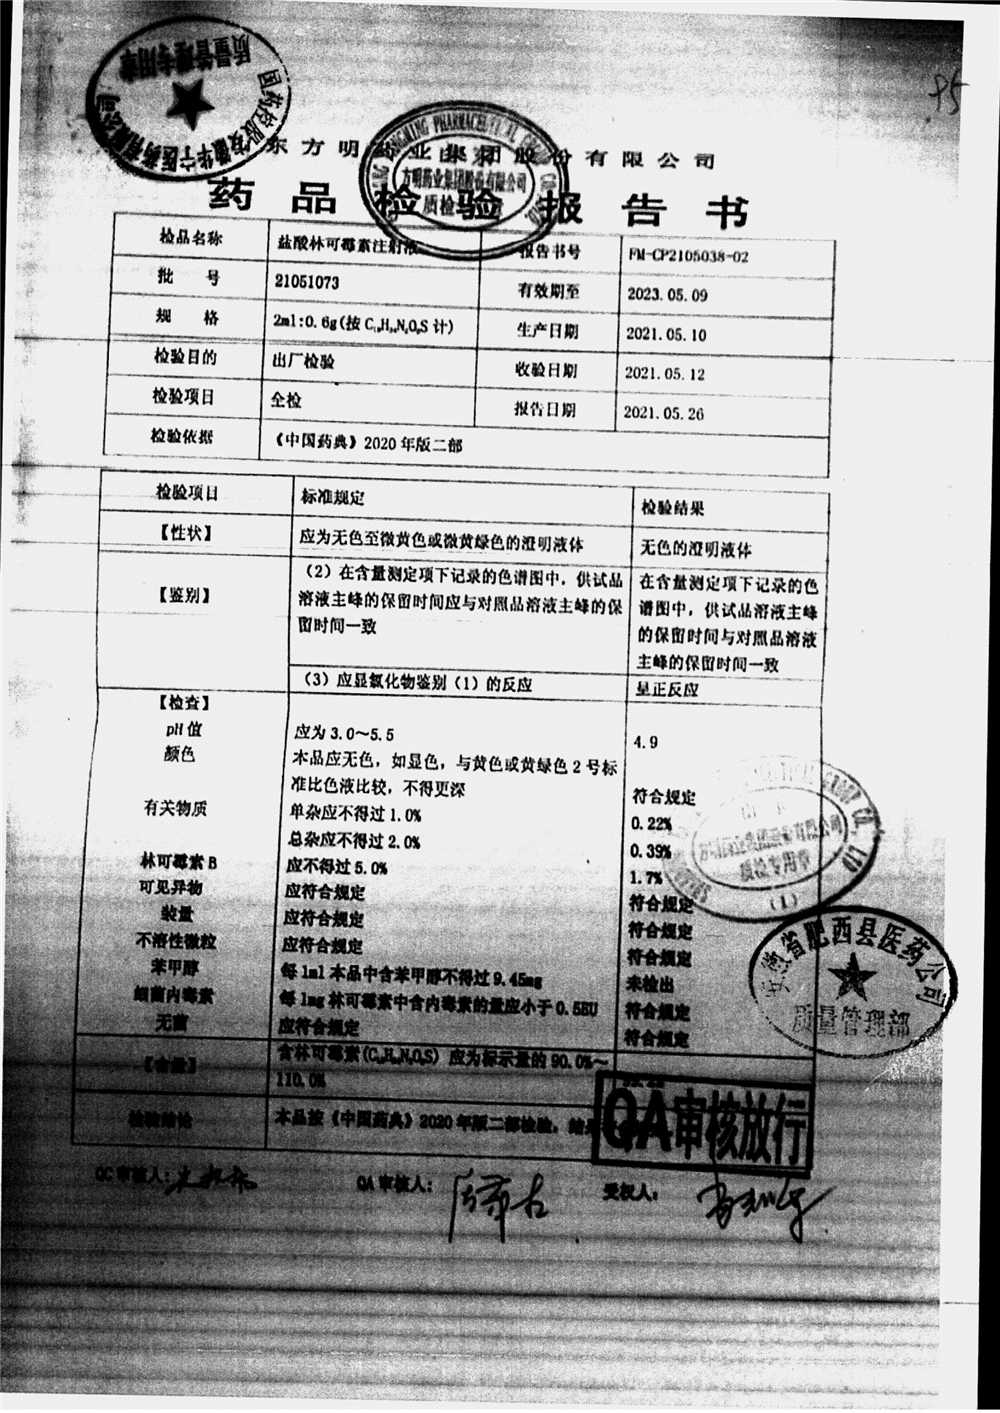 P5
质量管理专用章
国药控股安徽华宁医药有限公司
东方明药业集团股份有限公司
方明药业集团股份有限公司
质检
药品检验报告书
检品名称 盐酸林可霉素注射液 报告书号 FM-CP2105038-02
批号 21051073 有效期至 2023.05.09
规格 2ml:0.6g(按C₁₈H₃₄N₂O₆S计) 生产日期 2021.05.10
检验目的 出厂检验 收验日期 2021.05.12
检验项目 全检 报告日期 2021.05.26
检验依据 《中国药典》2020年版二部
检验项目 标准规定 检验结果
【性状】 应为无色至微黄色或微黄绿色的澄明液体 无色的澄明液体
【鉴别】 (2)在含量测定项下记录的色谱图中，供试品 在含量测定项下记录的色
溶液主峰的保留时间应与对照品溶液主峰的保 谱图中，供试品溶液主峰
留时间一致 的保留时间与对照品溶液
主峰的保留时间一致
(3)应显氯化物鉴别(1)的反应 呈正反应
【检查】
pH值 应为3.0～5.5 4.9
颜色 本品应无色，如显色，与黄色或黄绿色2号标
准比色液比较，不得更深 符合规定
有关物质 单杂应不得过1.0% 0.22%
总杂应不得过2.0% 0.39%
林可霉素B 应不得过5.0% 1.7%
可见异物 应符合规定 符合规定
装量 应符合规定 符合规定
不溶性微粒 应符合规定 符合规定
苯甲醇 每1ml本品中含苯甲醇不得过9.45mg 未检出
细菌内毒素 每1mg林可霉素中含内毒素的量应小于0.5EU 符合规定
无菌 应符合规定 符合规定
【含量】 含林可霉素(C₁₈H₃₄N₂O₆S)应为标示量的90.0%～
110.0%
检验结论 本品按《中国药典》2020年版二部检验，结果
QA审核放行
质检专用章
(1)
安徽省肥西县医药公司
质量管理部
QC审核人: QA审核人: 受权人: